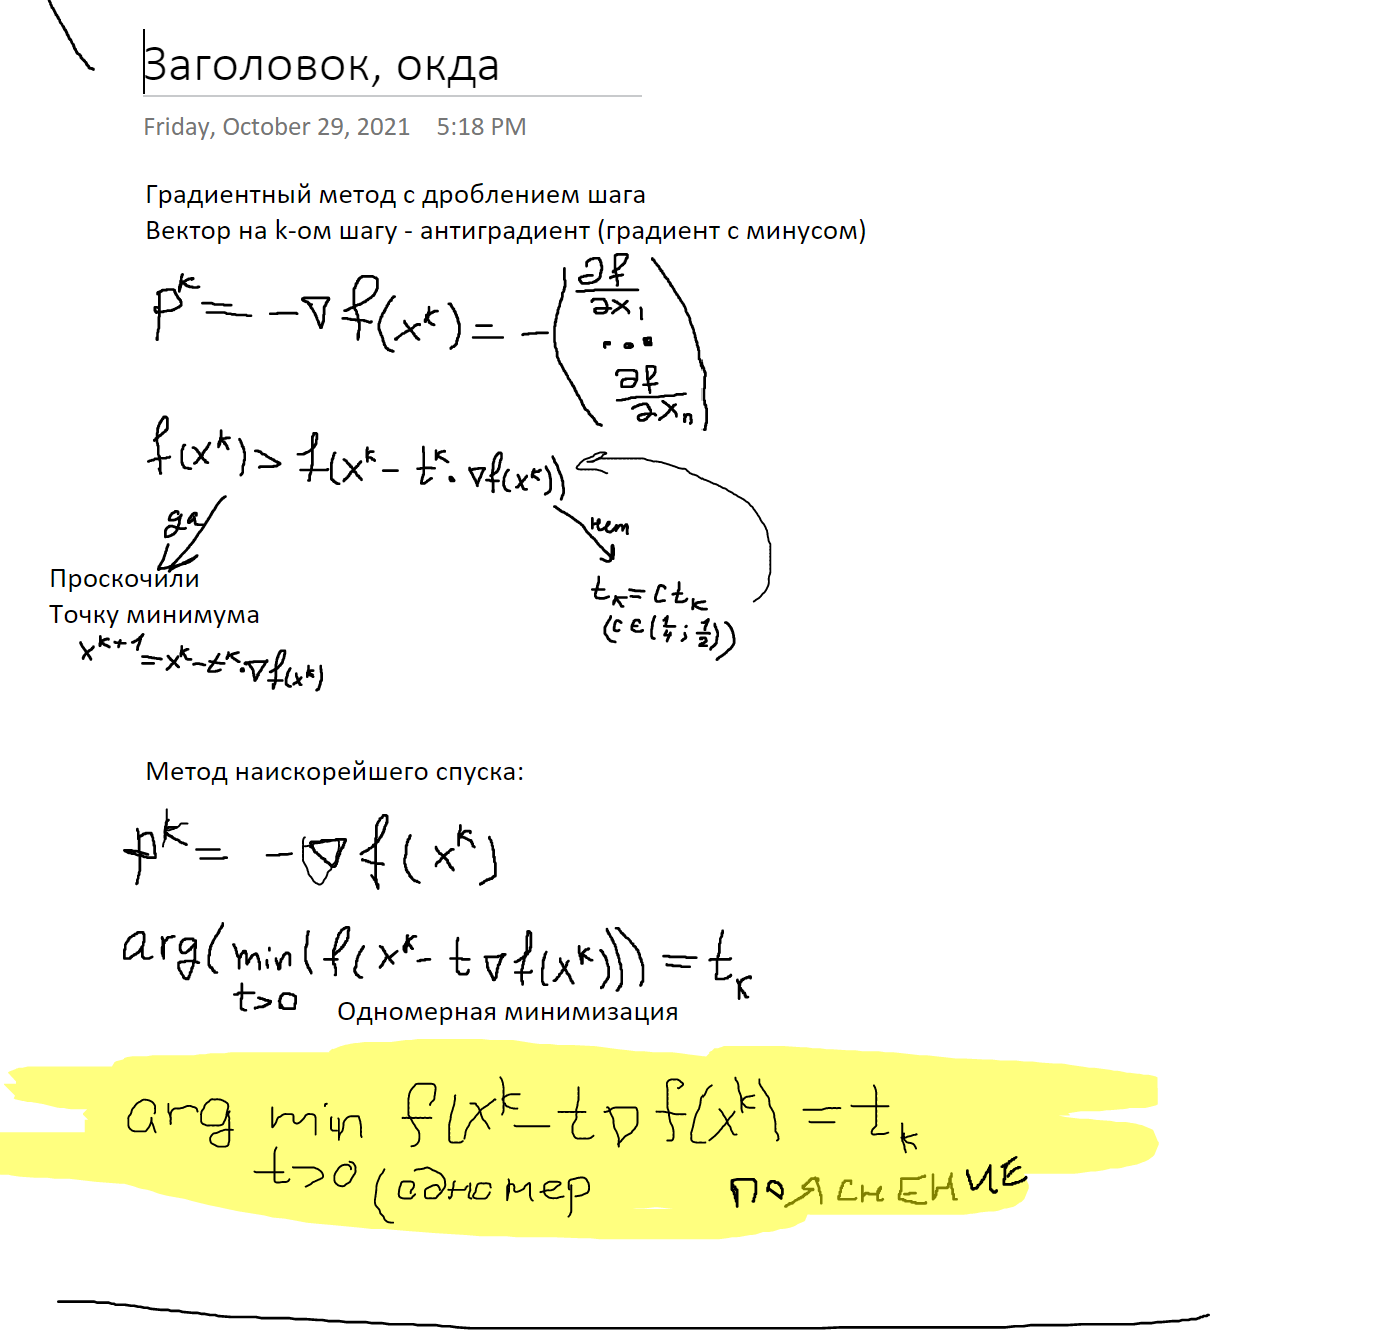 Заголовок, окда
Friday, October 29, 2021 5:18 PM
Градиентный метод с дроблением шага
Вектор на k-ом шагу - антиградиент (градиент с минусом)
p^k = -∇f(x^k) = -(∂f/∂x₁ ... ∂f/∂xₙ)
f(x^k) > f(x^k - t^k · ∇f(x^k))
да
нет
Проскочили
Точку минимума
x^{k+1} = x^k - t^k · ∇f(x^k)
t_k = c t_k
(c ∈ (1/4; 1/2))
Метод наискорейшего спуска:
p^k = -∇f(x^k)
arg(min(f(x^k - t∇f(x^k))) = t_k
t>0
Одномерная минимизация
arg min f(x^k - t∇f(x^k) = t_k
t>0 (одномер ПОЯСНЕНИЕ